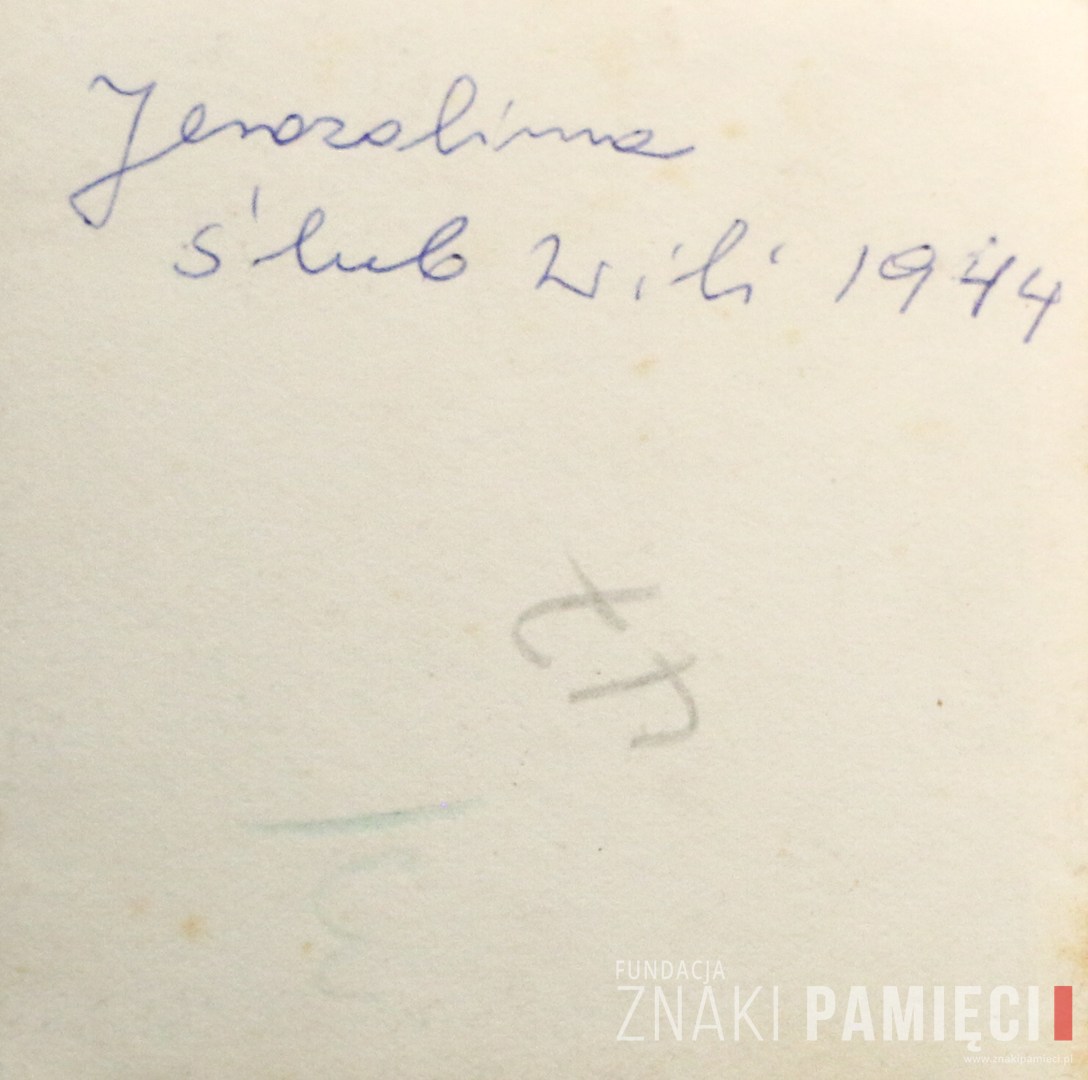 Jerozolima
ślub Wili 1944
FUNDACJA
ZNAKI PAMIĘCI
www.znakipamieci.pl